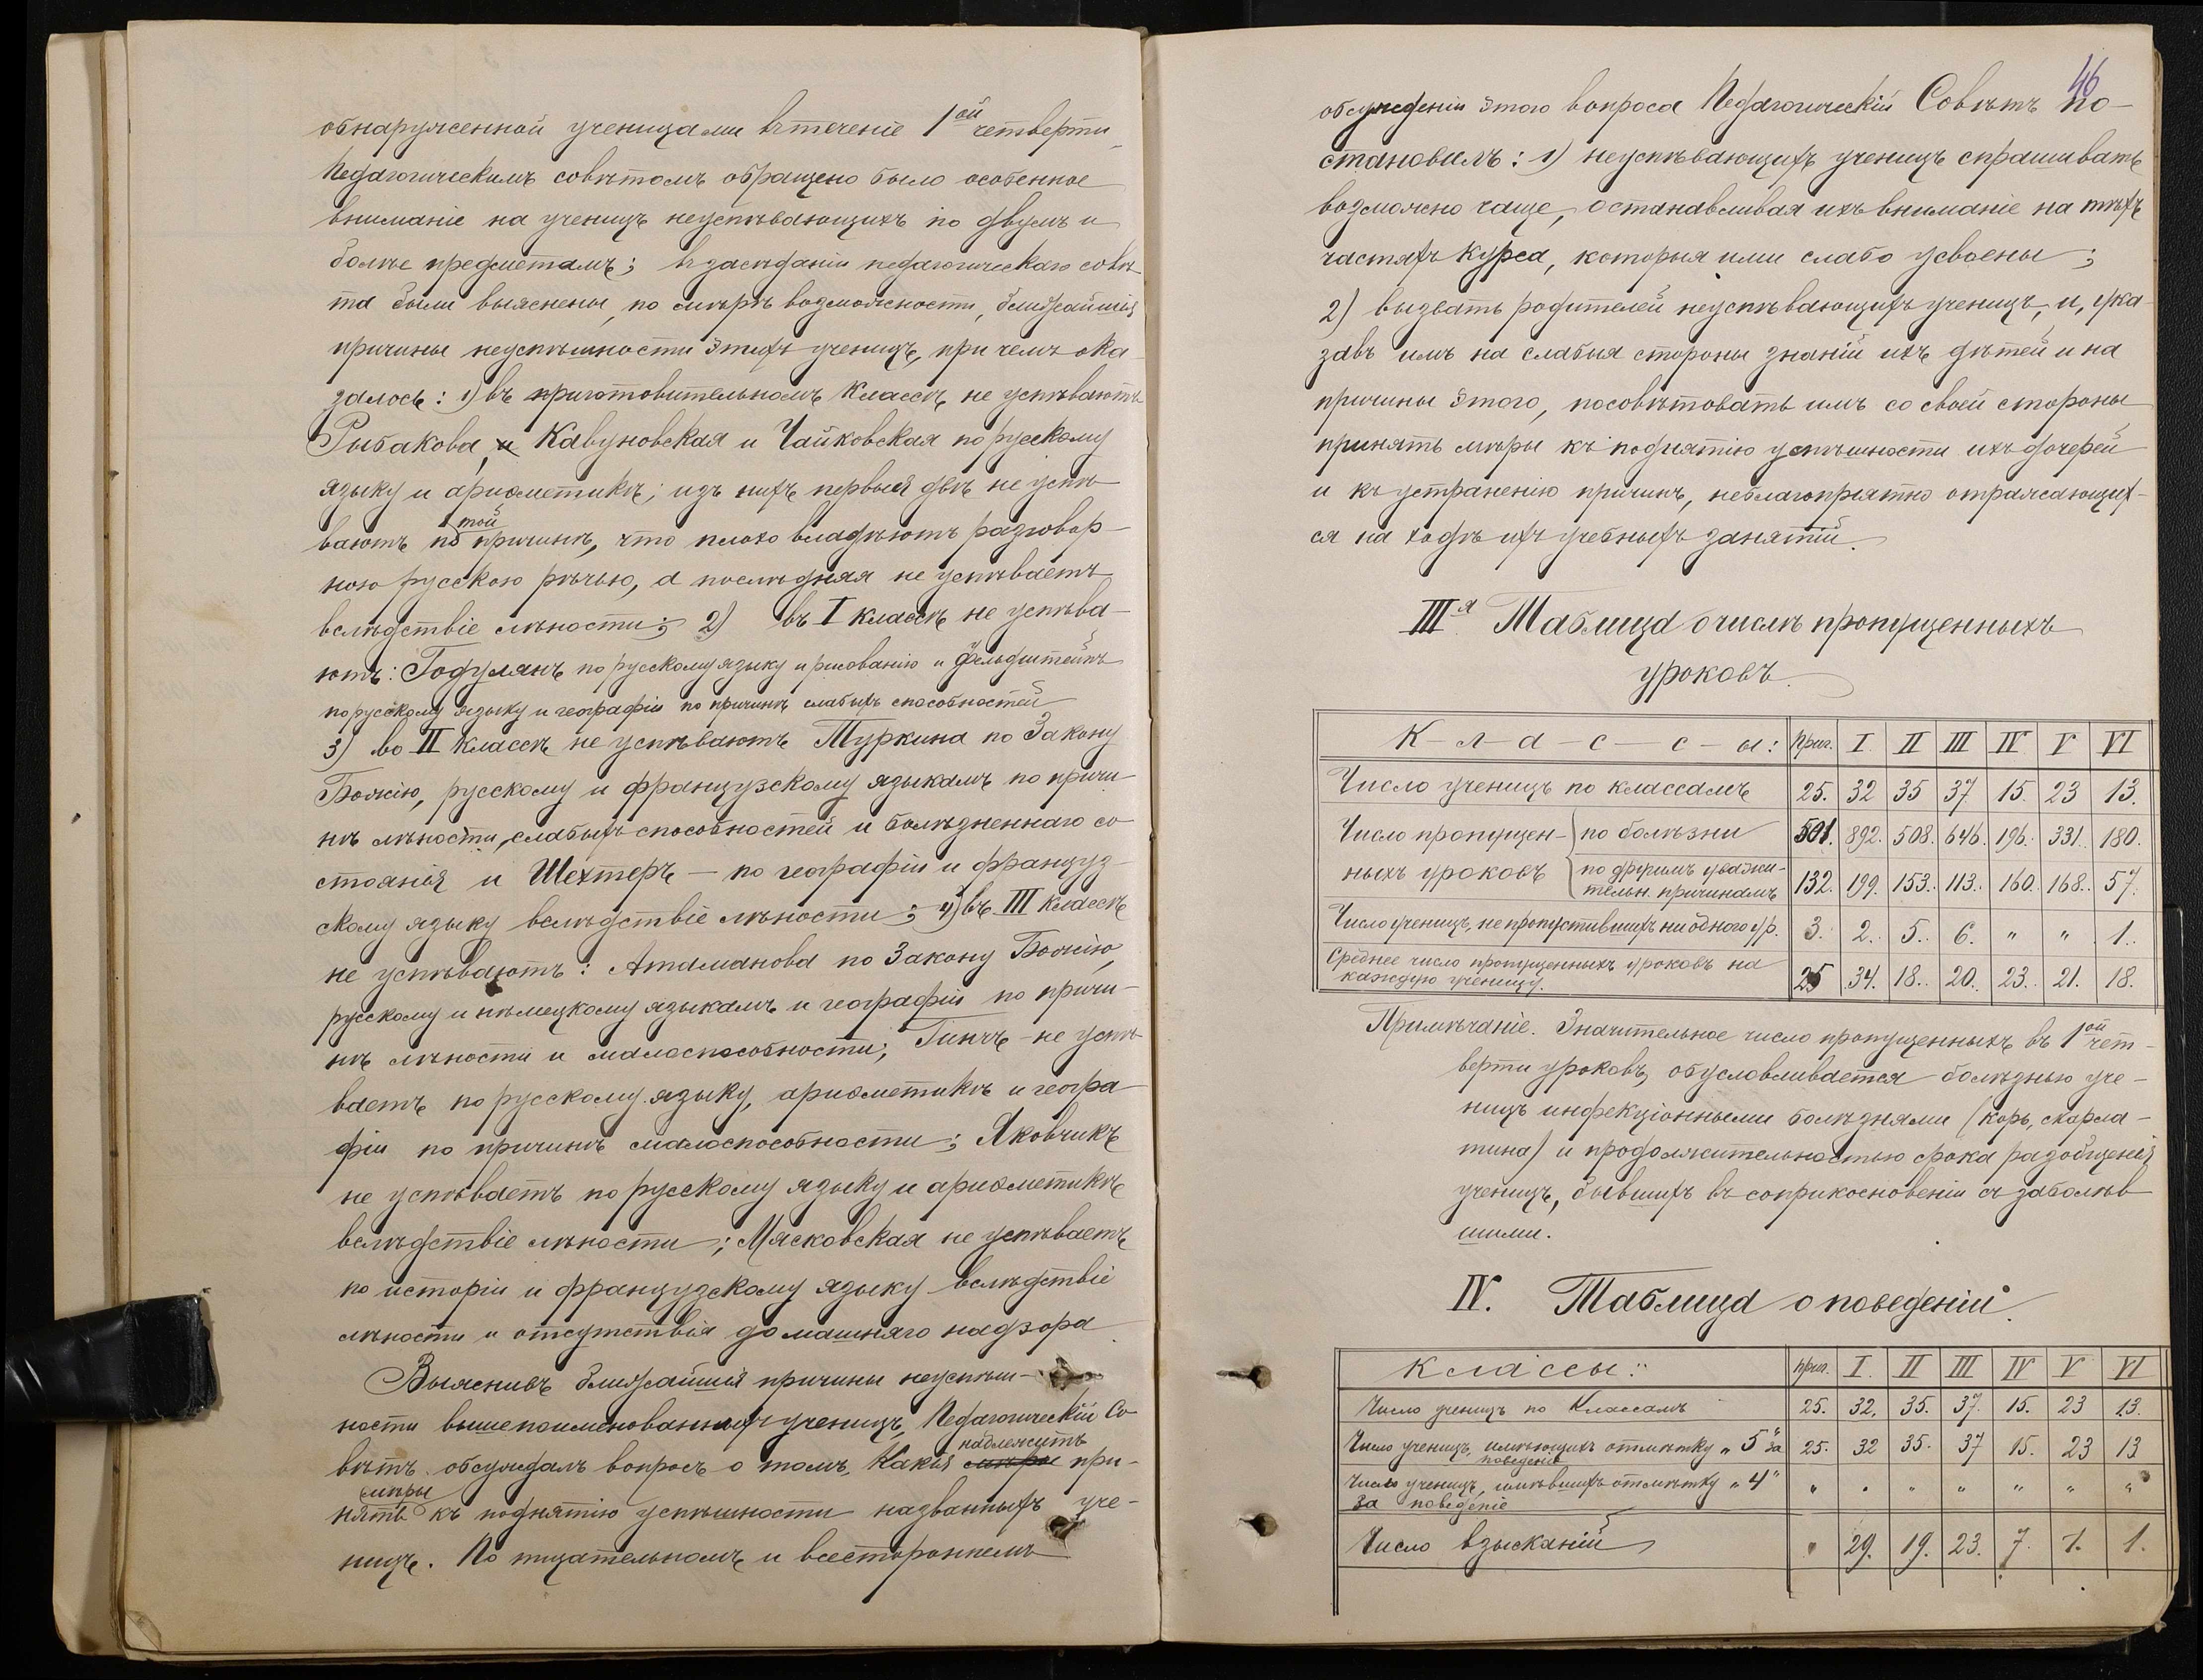 обнаруженной ученицами въ теченіе 1ой четверти,
Педагогическимъ совѣтомъ обращено было особенное
вниманіе на ученицъ неуспѣвающихъ по двумъ и
болѣе предметамъ; въ засѣданіи педагогическаго совѣ-
та были выяснены, по мѣрѣ возможности, ближайшія
причины неуспѣшности этихъ ученицъ, при чемъ ока-
залось: 1) въ приготовительномъ классѣ не успѣваютъ
Рыбакова, и Кавуновская и Чайковская по русскому
языку и ариѳметикѣ; изъ нихъ первыя двѣ не успѣ-
ваютъ по той причинѣ, что плохо владѣютъ разговор-
ною русскою рѣчью, а послѣдняя не успѣваетъ
вслѣдствіе лѣности; 2) въ I классѣ не успѣва-
ютъ: Годулянъ по русскому языку и рисованію и Фельдштейнъ
по русскому языку и географіи по причинѣ слабыхъ способностей
3) во II классѣ не успѣваютъ Туркина по Закону
Божію, русскому и французскому языкамъ по причи-
нѣ лѣности, слабыхъ способностей и болѣзненнаго со-
стоянія и Шехтеръ — по географіи и француз-
скому языку вслѣдствіе лѣности; 4) въ III классѣ
не успѣваютъ: Атаманова по Закону Божію,
русскому и нѣмецкому языкамъ и географіи по причи-
нѣ лѣности и малоспособности; Гинчъ не успѣ-
ваетъ по русскому языку, ариѳметикѣ и геогра-
фіи по причинѣ малоспособности; Яковчикъ
не успѣваетъ по русскому языку и ариѳметикѣ
вслѣдствіе лѣности; Мясковская не успѣваетъ
по исторіи и французскому языку вслѣдствіе
лѣности и отсутствія домашняго надзора
Выяснивъ ближайшія причины неуспѣш-
ности вышепоименованныхъ ученицъ, Педагогическій Со-
вѣтъ обсуждалъ вопросъ о томъ, какія мѣры надлежитъ при-
нять мѣры къ поднятію успѣшности названныхъ уче-
ницъ. По тщательномъ и всестороннемъ
46
обсужденіи этого вопроса Педагогическій Совѣтъ по-
становилъ: 1) неуспѣвающихъ ученицъ спрашивать
возможно чаще, останавливая ихъ вниманіе на тѣхъ
частяхъ курса, которыя ими слабо усвоены;
2) вызвать родителей неуспѣвающихъ ученицъ, и, ука-
завъ имъ на слабыя стороны знаній ихъ дѣтей и на
причины этого, посовѣтовать имъ со своей стороны
принять мѣры къ поднятію успѣшности ихъ дочерей
и къ устраненію причинъ, неблагопріятно отражающих-
ся на ходѣ ихъ учебныхъ занятій.
IIIя Таблица о числѣ пропущенныхъ
уроковъ.
К-л-а-с-с-ы: Приг. I II III IV V VI
Число ученицъ по классамъ 25. 32 35 37 15. 23 13.
Число пропущен- по болѣзни 501. 892. 508. 646. 196. 331. 180.
ныхъ уроковъ по другимъ уважи-
тельн. причинамъ 132. 199. 153. 113. 160. 168. 57.
Число ученицъ, не пропустившихъ ни одного ур. 3. 2. 5. 6. " " 1.
Среднее число пропущенныхъ уроковъ на
каждую ученицу. 25 34. 18. 20. 23. 21. 18.
Примѣчаніе. Значительное число пропущенныхъ въ 1ой чет-
верти уроковъ, обусловливается болѣзнью уче-
ницъ инфекціонными болѣзнями (корь, скарла-
тина) и продолжительностью срока разобщенія
ученицъ, бывшихъ въ соприкосновеніи съ заболѣв-
шими.
IV. Таблица о поведеніи.
классы: приг. I. II III IV V VI
Число ученицъ по классамъ 25. 32. 35. 37. 15. 23 13.
Число ученицъ, имѣющихъ отмѣтку „5" за
поведеніе 25. 32 35. 37 15. 23 13
Число ученицъ, имѣвшихъ отмѣтку „4"
за поведеніе " " " " " " "
Число взысканій " 29. 19. 23. 7. 1. 1.